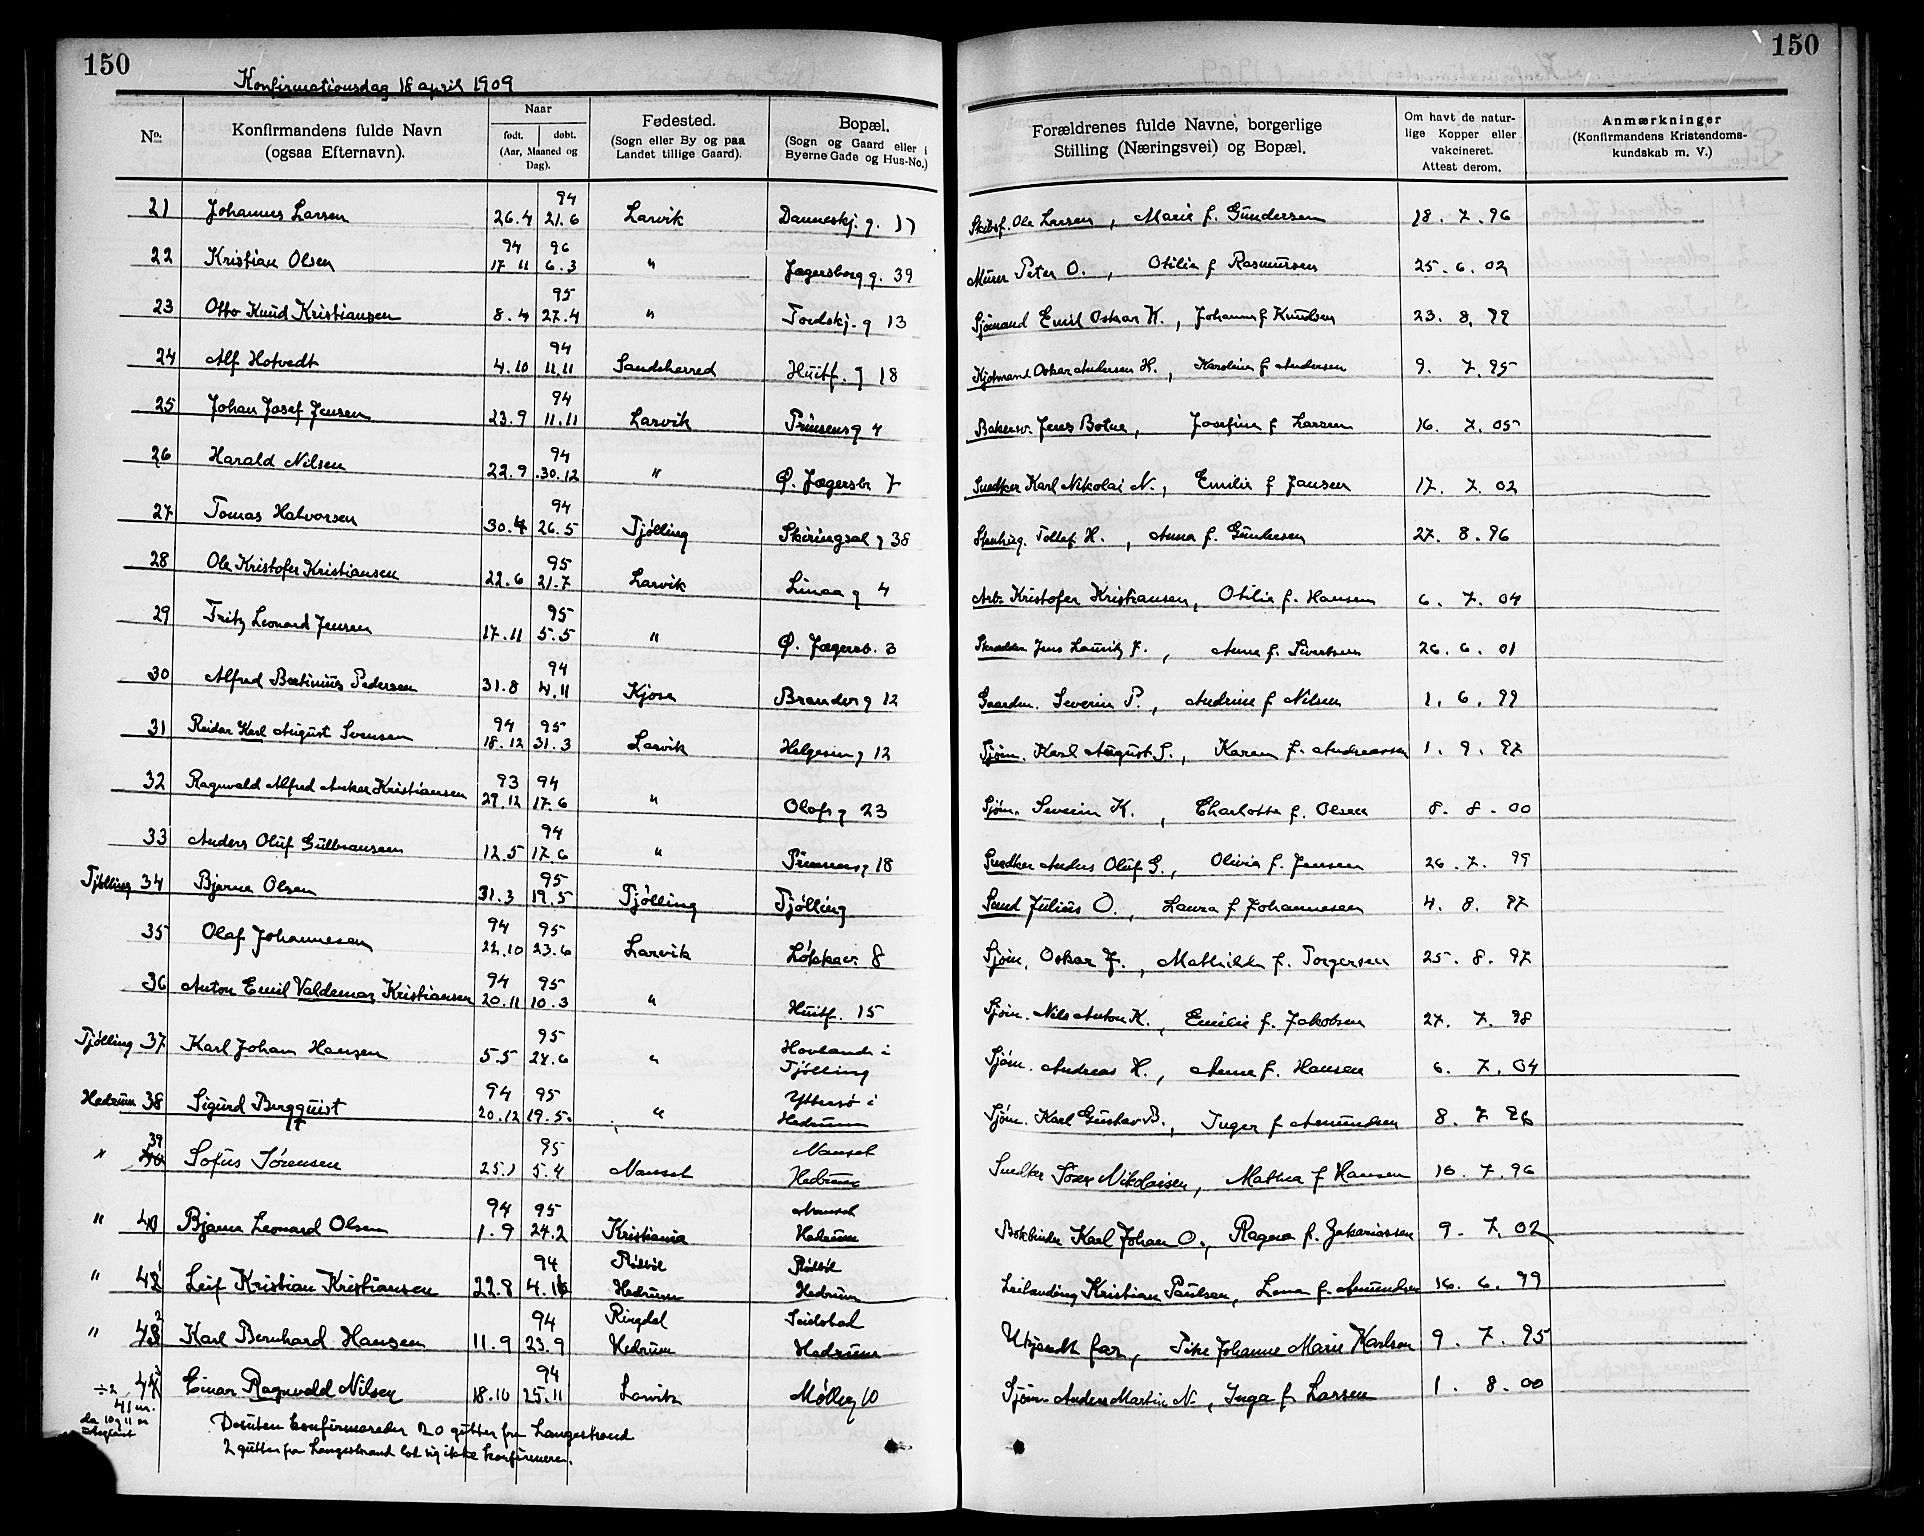 150
150
Konfirmationsdag 18 april 1909
No. Konfirmandens fulde Navn (ogsaa Efternavn). Naar født. døbt. (Aar, Maaned og Dag). Fødested. (Sogn eller By og paa Landet tillige Gaard). Bopæl. (Sogn og Gaard eller i Byerne Gade og Hus-No.) Forældrenes fulde Navne, borgerlige Stilling (Næringsvei) og Bopæl. Om havt de naturlige Kopper eller vakcineret. Attest derom. Anmærkninger (Konfirmandens Kristendomskundskab m. V.)
21 Johannes Larsen 26.4 94 21.6 Larvik Danneskj. g. 17 Skibsf. Ole Larsen, Marie f. Gundersen 18.7.96
22 Kristian Olsen 94 17 11 96 6.3 " Jegersborg g. 39 Murer Peter O., Otilie f Rasmussen 25.6.02
23 Otto Knud Kristiansen 8.4 95 27.4 " Tordskj. g 13 Sjømand Emil Oskar K., Johanne f Knudsen 23.8.99
24 Alf Hotvedt 4.10 94 11.11 Sandeherred Huitf. g 18 Oskar Andersen H., Karoline f Andersen 9. 7.95
25 Johan Josef Jensen 23.9 94 11.11 Larvik Prinsens g 4 Bakersv. Jens Bolne, Josefine f Larsen 16. 7. 05
26 Harald Nilsen 22.9 94 30.12 " Ø. Jegersb. 7 Snedker Karl Nikolai N., Emilie f Jansen 17. 7.02
27 Tomas Halvorsen 30.4 94 26.5 Tjølling Skiringsal g 38 Stenhug. Tollef H., Anna f. Gundersen 27. 8.96
28 Ole Kristofer Kristiansen 22.6 95 21.7 Larvik Linaa g 4 Arb. Kristofer Kristiansen, Otilie f. Hansen 6. 7. 04
29 Fritz Leonard Jensen 17.11 95 5.5 " Ø. Jegersb. 3 Skrædder Jens Lauritz J., Anna f. Sivertsen 26.6.01
30 Alfred Pedersen 31.8 94 4.11 Kjose Brander g 12 Gaardm. Severin P., Andrine f Nilsen 1. 6. 99
31 Reidar Karl August Svensen 94 18.12 95 31.3 Larvik Helgesen g 12 Sjøm. Karl August S., Karen f. Andreassen 1. 9. 97
32 Ragnvald Alfred Anker Kristiansen 93 29.12 94 17.6 " Olafs g 23 Sjøm. Severin K., Charlotte f. Olsen 8. 8.00
33 Anders Oluf Gulbransen 12.5 94 17.6 " Prinsens g 18 Snedker Anders Oluf G., Olivia f. Jensen 26.7. 99
Tjølling 34 Bjarne Olsen 31.3 95 19.5 Tjølling Tjølling Smed Julius O., Laura f Johannesen 4. 8. 97
35 Olaf Johannesen 94 22.10 95 23.6 Larvik Løkkev. 8 Sjøm. Oskar J., Mathilde f. Torgersen 25.8.97
36 Anton Emil Valdemar Kristiansen 94 20.11 95 10.3 " Huitf. 15 Sjøm. Nils Anton K., Emilie f. Jakobsen 27. 7. 98
Tjølling 37 Karl Johan Hansen 5.5 95 28.6 " Hovland i Tjølling Sjøm. Andreas H., Anna f. Hansen 6. 7.04
Hedrum 38 Sigurd Bergquist 94 20.12 95 19.5 " Yttersø i Hedrum Sjøm. Karl Gustav B., Inger f Amundsen 8. 7 96
" 39 Sofus Sørensen 25.1 95 5.4 Nanset Nanset Hedrum Snedker Søren Nikolaisen, Mathea f Hansen 10. 7.96
" 40 Bjarne Leonard Olsen 94 1.9 95 24.2 Kristiania Nanset Hedrum Bokbinder Karl Johan O., Ragna f. Zakariassen 9. 7.02
" 41 Leif Kristian Kristiansen 22.8 94 4.11 Hedrum Hedrum Leilænding Kristian Paulsen, Lena f. Amundsen 16. 6. 99
" 42 Karl Bernhard Hansen 11.9 94 23.9 Ringdal Hedrum Seierstad Hedrum Ukjendt far, Pike Johanne Marie Karlsen 9. 7. 95
÷2 43 Einar Ragnvald Nilsen 18.10 94 25.11 Larvik Mølleg 10 Sjøm Anders Martin N., Inga f Larsen 1. 8.00
41 m.
da 10 g 11 er
Desuten konfirmeredes 20 gutter fra Langestrand
2 gutter fra Langestrand lod sig ikke konfirmere.